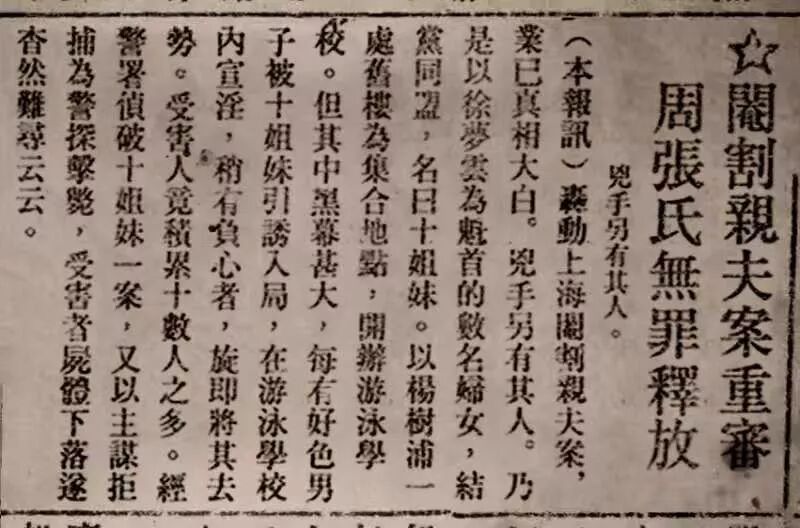 ☆閹割親夫案重審
周張氏無罪釋放
兇手另有其人。
（本報訊）轟動上海閹割親夫案，
業已真相大白。兇手另有其人。乃
是以徐夢雲為魁首的數名婦女，結
黨同盟，名曰十姐妹。以楊樹浦一
處舊樓為集合地點，開辦游泳學
校。但其中黑幕甚大，每有好色男
子被十姐妹引誘入局，在游泳學校
內宣淫，稍有負心者，旋即將其去
勢。受害人竟積累十數人之多。經
警署偵破十姐妹一案，又以主謀拒
捕為警探擊斃，受害者屍體下落遂
杳然難尋云云。